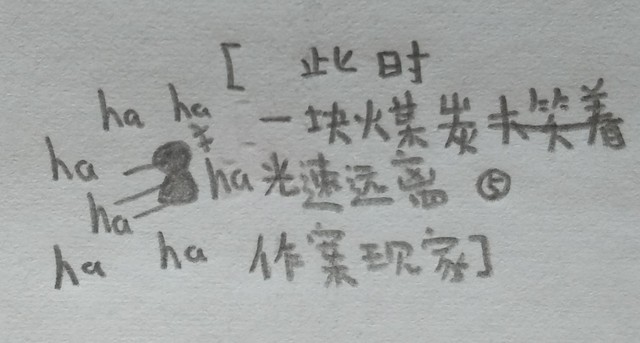 [ 此时
ha ha
一块煤炭笑着
ha
ha 光速远离 ⑤
ha
ha ha
作案现家]